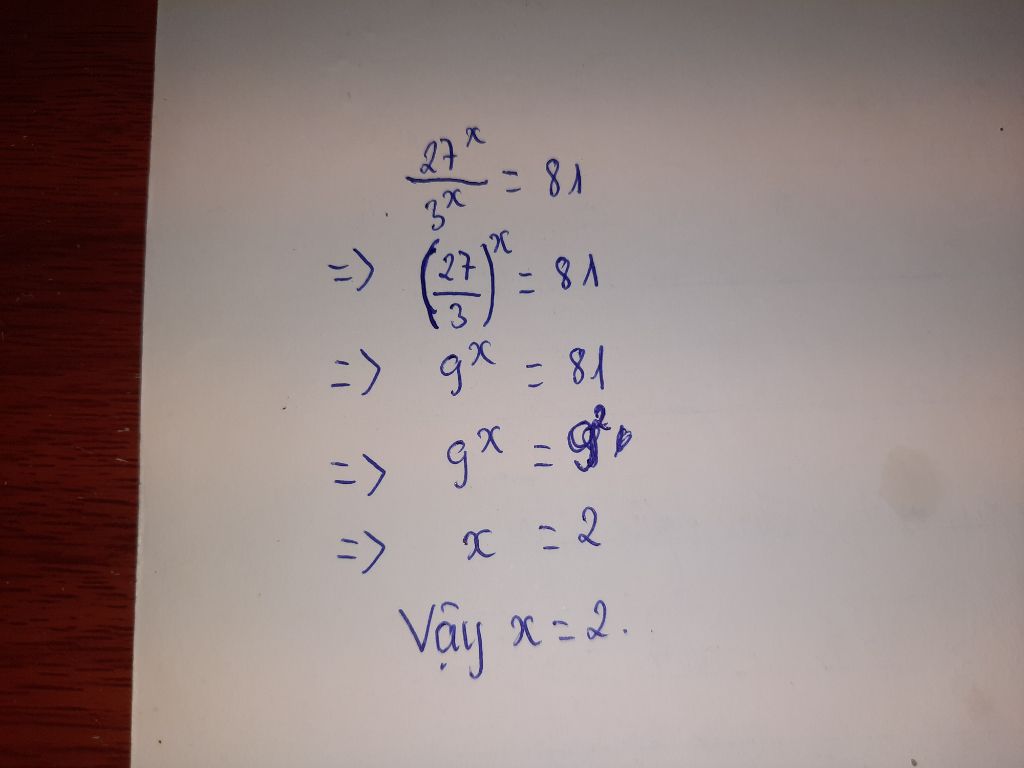 27^x / 3^x = 81
=> (27/3)^x = 81
=> 9^x = 81
=> 9^x = 9^2.
=> x = 2
Vậy x = 2.